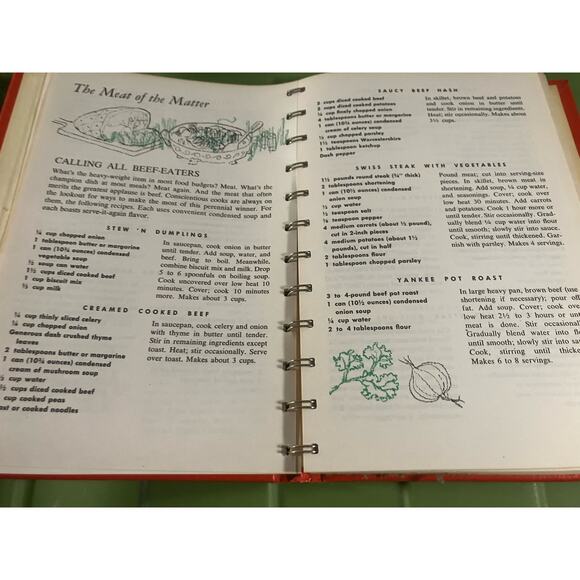 The Meat of the Matter
CALLING ALL BEEF-EATERS
What's the heavy-weight item in most food budgets? Meat. What's the
champion dish at most meals? Meat again. And the meat that often
merits the greatest applause is beef. Conscientious cooks are always on
the lookout for ways to make the most of this perennial winner. For
them, the following recipes. Each uses convenient condensed soup and
each boasts serve-it-again flavor.
STEW 'N DUMPLINGS
¼ cup chopped onion
1 tablespoon butter or margarine
1 can (10¾ ounces) condensed
vegetable soup
½ soup can water
1½ cups diced cooked beef
1 cup biscuit mix
⅓ cup milk
In saucepan, cook onion in butter
until tender. Add soup, water, and
beef. Bring to boil. Meanwhile
combine biscuit mix and milk. Drop
5 to 6 spoonfuls on boiling soup.
Cook uncovered over low heat 10
minutes. Cover; cook 10 minutes
more. Makes about 3 cups.
CREAMED COOKED BEEF
¼ cup thinly sliced celery
¼ cup chopped onion
Generous dash crushed thyme
leaves
2 tablespoons butter or margarine
1 can (10¾ ounces) condensed
cream of mushroom soup
cup water
cups diced cooked beef
cup cooked peas
or cooked noodles
In saucepan, cook celery and onion
with thyme in butter until tender.
Stir in remaining ingredients except
toast. Heat; stir occasionally. Serve
over toast. Makes about 3 cups.
SAUCY BEEF HASH
2 cups diced cooked beef
2 cups diced cooked potatoes
cup finely chopped onion
tablespoons butter or margarine
1 can (10¾ ounces) condensed
cream of celery soup
cup chopped parsley
1½ teaspoons Worcestershire
1 tablespoon ketchup
Dash pepper
In skillet, brown beef and potatoes
and cook onion in butter until
tender. Stir in remaining ingredients.
Heat; stir occasionally. Makes about
3½ cups.
SWISS STEAK WITH VEGETABLES
1½ pounds round steak (¾" thick)
2 tablespoons shortening
1 can (10½ ounces) condensed
onion soup
½ cup water
teaspoon salt
teaspoon pepper
4 medium carrots (about ½ pound),
cut in 2-inch pieces
4 medium potatoes (about 1½
pounds), cut in half
2 tablespoons flour
1 tablespoon chopped parsley
Pound meat; cut into serving-size
pieces. In skillet, brown meat in
shortening. Add soup, ¼ cup water,
and seasonings. Cover; cook over
low heat 30 minutes. Add carrots
and potatoes. Cook 1 hour more or
until tender. Stir occasionally. Grad-
ually blend ¼ cup water into flour
until smooth; slowly stir into sauce.
Cook, stirring until thickened. Gar-
nish with parsley. Makes 4 servings.
YANKEE POT ROAST
3 to 4-pound beef pot roast
1 can (10½ ounces) condensed
onion soup
¼ cup water
2 to 4 tablespoons flour
In large heavy pan, brown beef (use
shortening if necessary); pour off
fat. Add soup. Cover; cook over
low heat 2½ to 3 hours or until
meat is done. Stir occasionally.
Gradually blend water into flour
until smooth; slowly stir into sauce.
Cook, stirring until thickened.
Makes 6 to 8 servings.